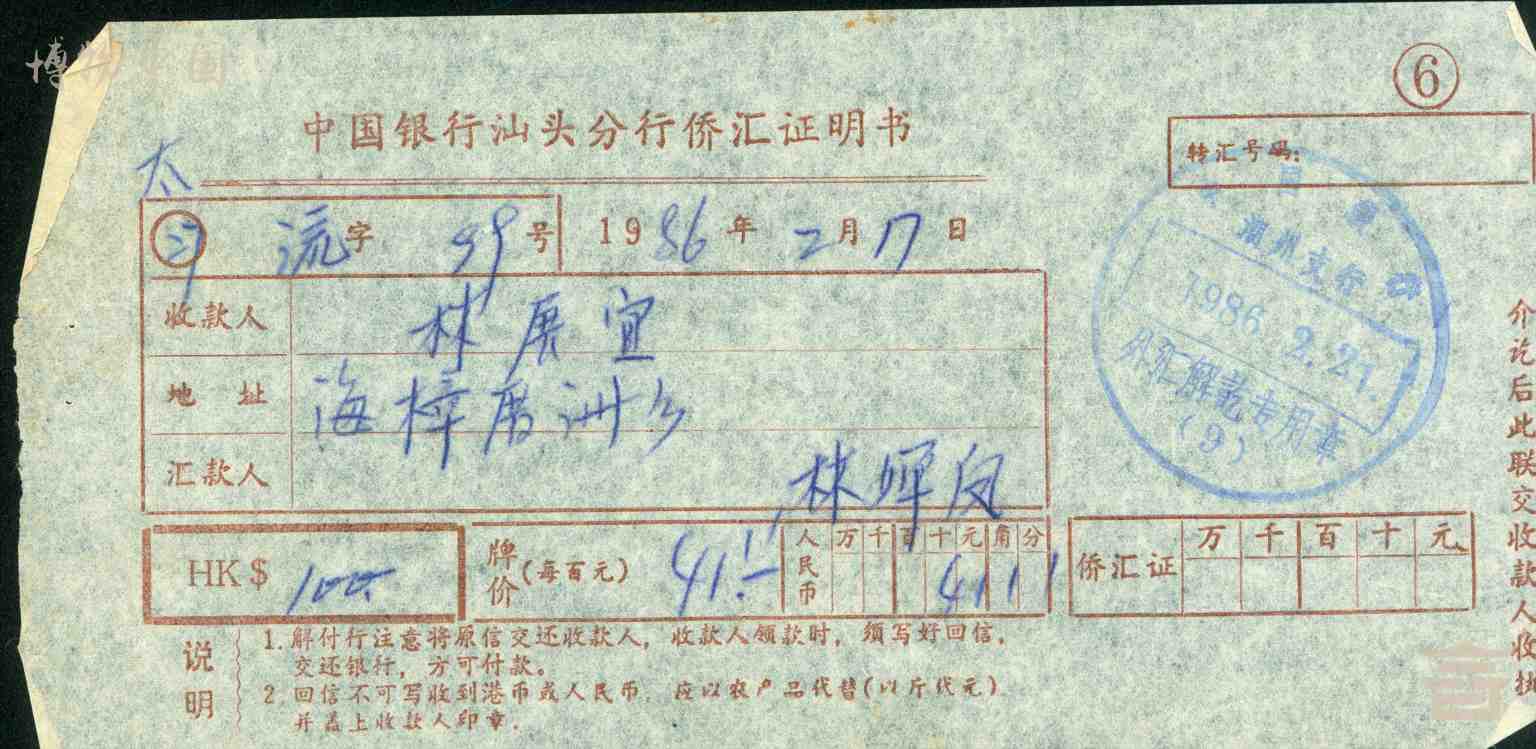 博物中国
⑥
中国银行汕头分行侨汇证明书
转汇号码:
流字 99号 1986年 2月17日
收款人 林展宜
地址 海樟厝洲乡
汇款人 林晖凤
支行
1986.2.21.
外汇解讫专用章
(9)
HK$ 100.
牌价(每百元) 41.11
人民币 万千百十元角分 41 1 1
侨汇证 万千百十元
说明
1. 解付行注意将原信交还收款人,收款人领款时,须写好回信,
交还银行,方可付款。
2. 回信不可写收到港币或人民币,应以农产品代替(以斤代元)
并盖上收款人印章.
介讫后此联交收款人收执